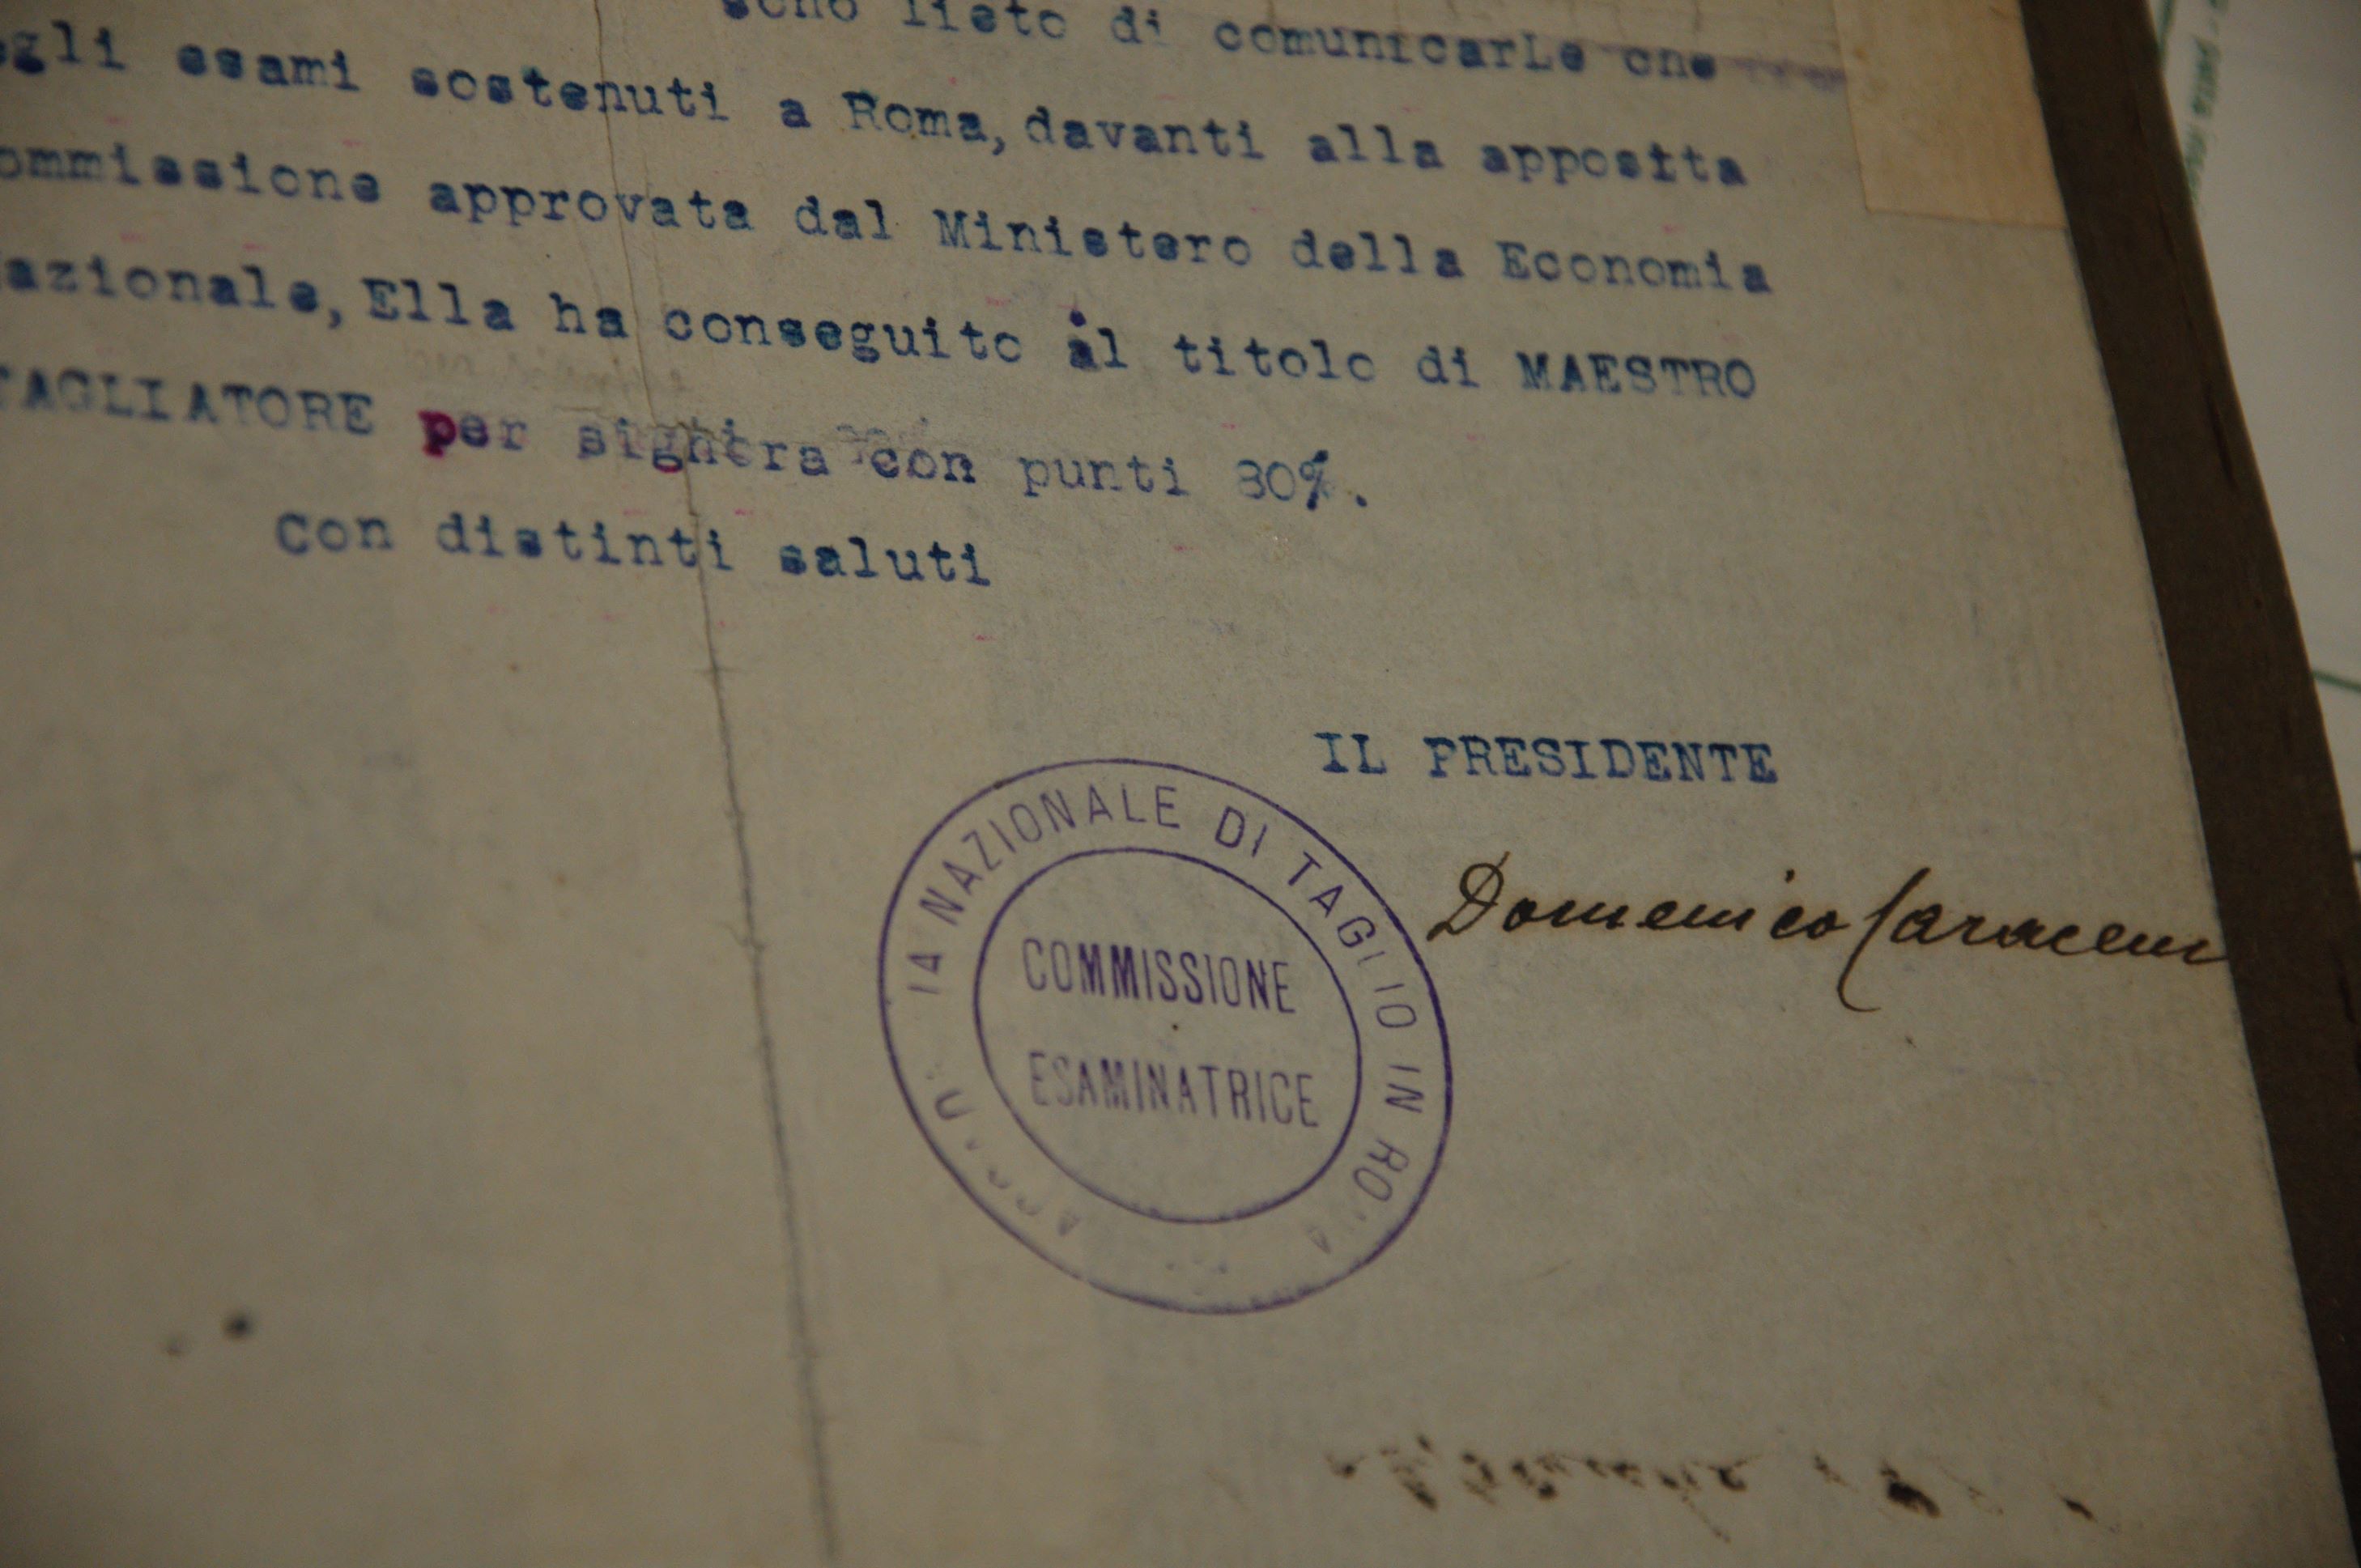 sono lieto di comunicarLe che
egli esami sostenuti a Roma, davanti alla apposita
ommissione approvata dal Ministero della Economia
azionale, Ella ha conseguito il titolo di MAESTRO
TAGLIATORE per con punti 80%.
Con distinti saluti
IL PRESIDENTE
Domenico Caraceni
IA NAZIONALE DI TAGLIO IN RO
COMMISSIONE
ESAMINATRICE